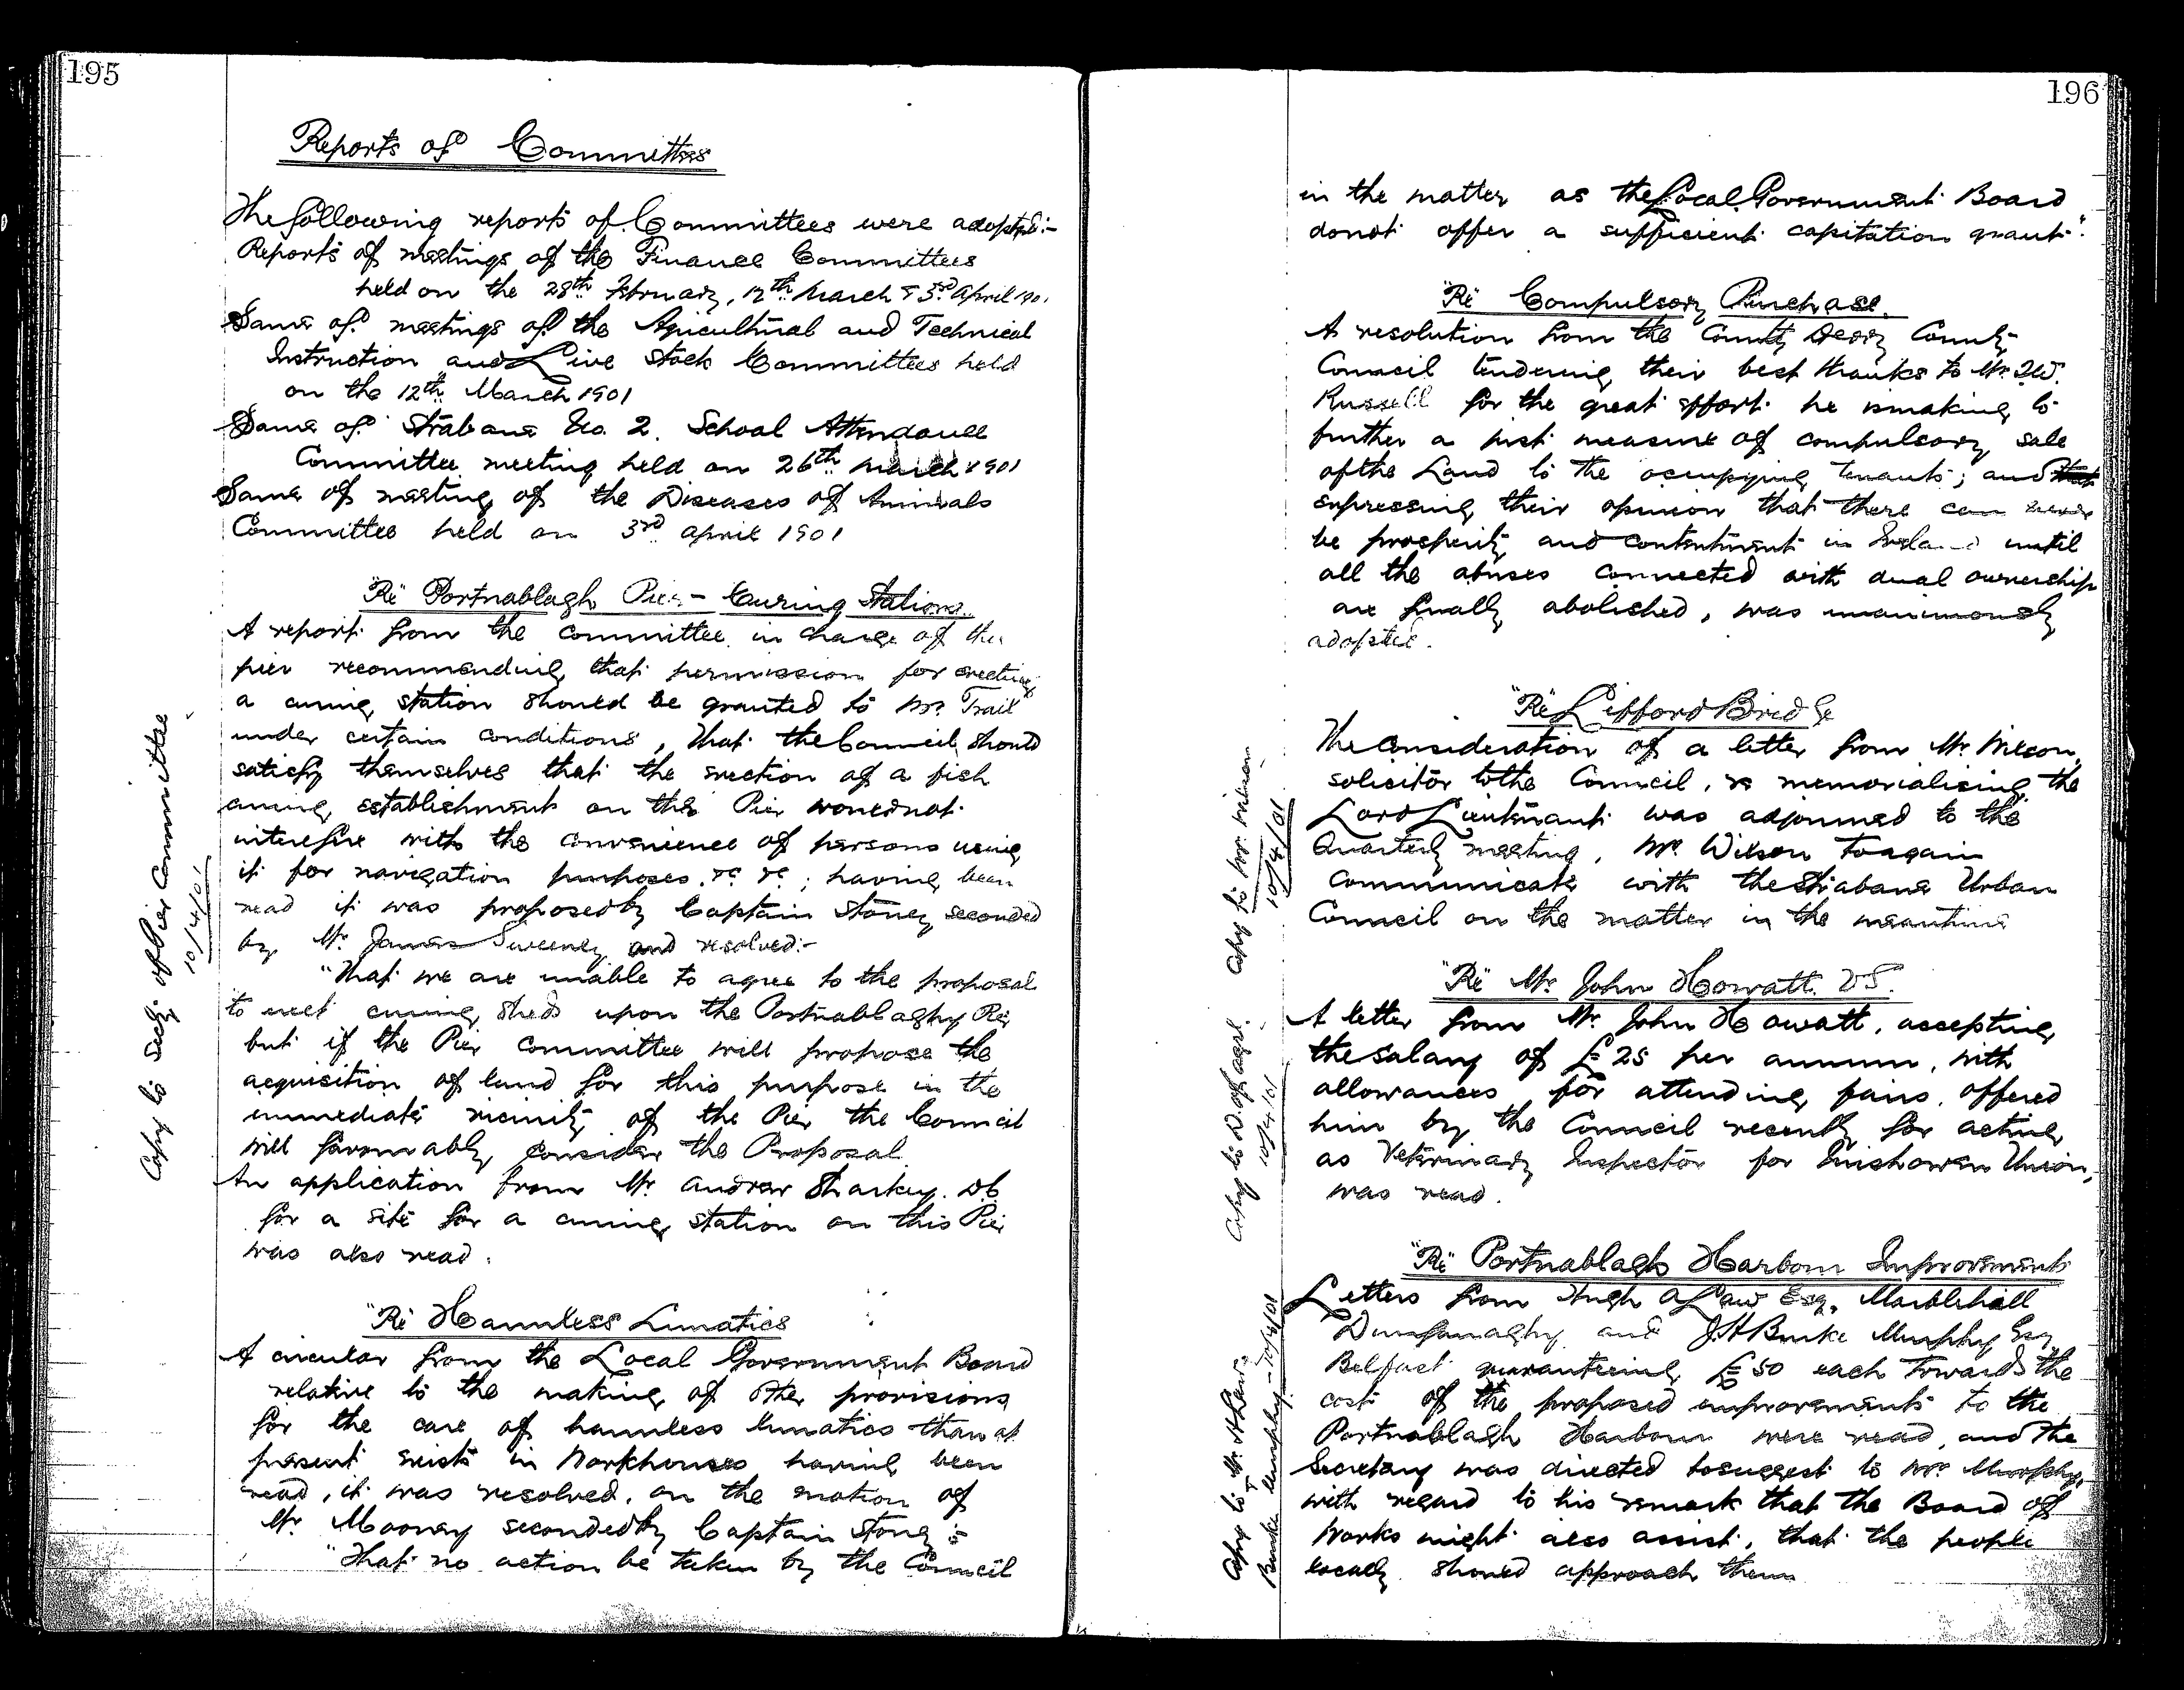 195
Reports of Committees
The following reports of Committees were adopted:-
Reports of meetings of the Finance Committees
held on the 28th February, 12th March & 3rd April 1901
Same of meetings of the Agricultural and Technical
Instruction and Live Stock Committees held
on the 12th March 1901
Same of Strabane No. 2. School Attendance
Committee meeting held on 26th March 1901
Same of meeting of the Diseases of Animals
Committee held on 3rd April 1901
"Re" Portnablagh Pier - Curing Stations.
A report from the Committee in charge of the
pier recommending that permission for erecting
a curing station should be granted to Mr. Trail
under certain conditions, that the Council should
satisfy themselves that the erection of a fish
curing establishment on the Pier would not
interefire with the convenience of persons using
it for navigation purposes. &c &c; having been
read it was proposed by Captain Stoney seconded
by Mr. James Sweeney and resolved:-
"That we are unable to agree to the proposal
to erect curing sheds upon the Portnablaghy Pier
but if the Pier Committee will propose the
acquisition of land for this purpose in the
immediate vicinity of the Pier the Council
will favourably consider the Proposal.
An application from Mr. Andrew Sharkey. D.C.
for a site for a curing station on this Pier
was also read.
"Re" Harmless Lunatics
A circular from the Local Government Board
relative to the making of other provisions
for the care of harmless lunatics than at
present exists in Workhouses having been
read, it was resolved, on the motion of
Mr. Mooney seconded by Captain Stoney :-
"That no action be taken by the Council
Copy to Secty of Pier Committee
10/4/01
196
in the matter as the Local Government Board
donot offer a sufficient capitation grant".
"Re" Compulsory Purchase.
A resolution from the County Derry County
Council tendering their best thanks to Mr. T.W.
Russell for the great effort he is making to
further a just measure of compulsory sale
of the Land to the occupying tenants; and that
expressing their opinion that there can never
be prosperity and contentment in Ireland until
all the abuses connected with dual ownership
are finally abolished, was unanimously
adopted.
"Re" Lifford Bridge
The consideration of a letter from Mr. Wilson,
solicitor to the Council, re memorialising the
Lord Lieutenant was adjourned to the
Quarterly meeting, Mr. Wilson to again
communicate with the Strabane Urban
Council on the matter in the meantime
Copy to Mr. Wilson
10/4/01
"Re" Mr. John Howatt. V.S.
A letter from Mr. John Howatt, accepting
the salary of £25 per annum, with
allowances for attending fairs, offered
him by the Council recently for acting
as Veterinary Inspector for Inishowen Union,
was read.
Copy to D. of Agri.
10/4/01
"Re" Portnablagh Harbour Improvements
Letters from Hugh A Law Esq. Marblehill
Dunfanaghy and J.H Burke Murphy Esq
Belfast guaranteeing £50 each towards the
cost of the proposed improvements to the
Portnablagh Harbour were read, and the
Secretary was directed to suggest to Mr. Murphy,
with regard to his remark that the Board of
Works might also assist, that the people
locally should approach them
Copy to Mr. H Law &
Burke Murphy - 10/4/01